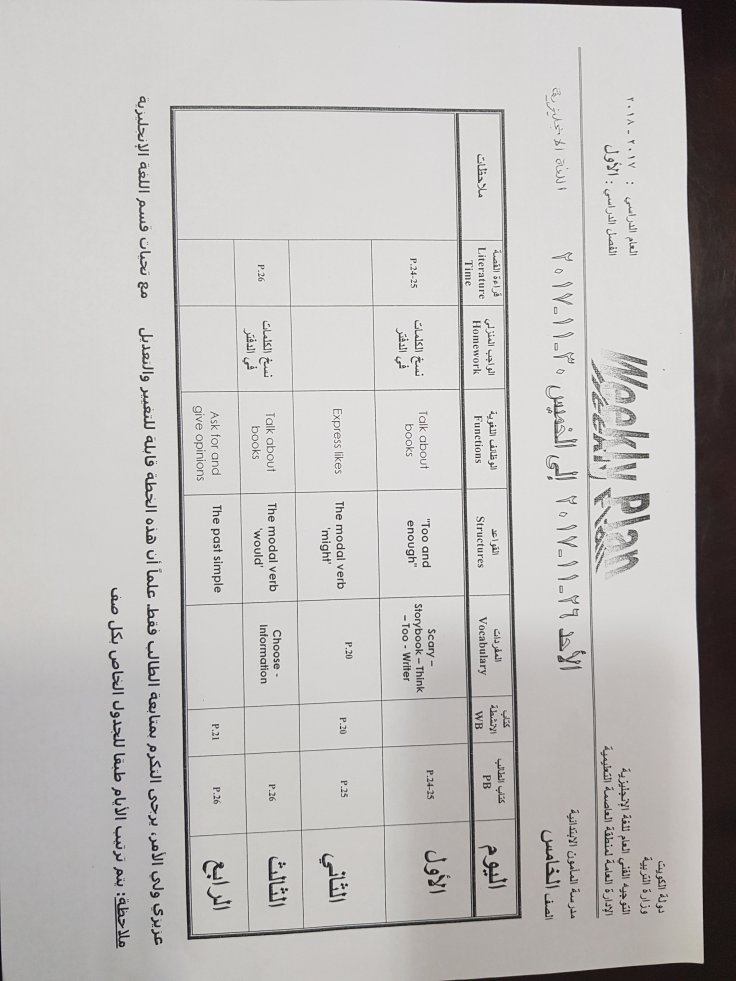 دولة الكويت
وزارة التربية
التوجيه الفني العام للغة الإنجليزية
الإدارة العامة لمنطقة العاصمة التعليمية
مدرسة المأمون الابتدائية
الصف الخامس
Weekly Plan
العام الدراسي : ٢٠١٧ - ٢٠١٨
الفصل الدراسي : الأول
الأحد ٢٦-١١-٢٠١٧ إلى الخميس ٣٠-١١-٢٠١٧
اللغة الانجليزية
اليوم
كتاب الطالب
PB
كتاب الأنشطة
WB
المفردات
Vocabulary
القواعد
Structures
الوظائف اللغوية
Functions
الواجب المنزلي
Homework
قراءة القصة
Literature
Time
ملاحظات
الأول
P.24-25
Scary –
Storybook – Think
– Too - Writer
"Too and
enough"
Talk about
books
نسخ الكلمات
في الدفتر
P.24-25
الثاني
P.25
P.20
P.20
The modal verb
'might'
Express likes
الثالث
P.26
Choose -
Information
The modal verb
'would'
Talk about
books
نسخ الكلمات
في الدفتر
P.26
الرابع
P.26
P.21
The past simple
Ask for and
give opinions
عزيزي ولي الأمر، يرجى التكرم بمتابعة الطالب فقط. علماً أن هذه الخطة قابلة للتغيير والتعديل مع تحيات قسم اللغة الإنجليزية
ملاحظة: يتم ترتيب الأيام طبقا للجدول الخاص بكل صف